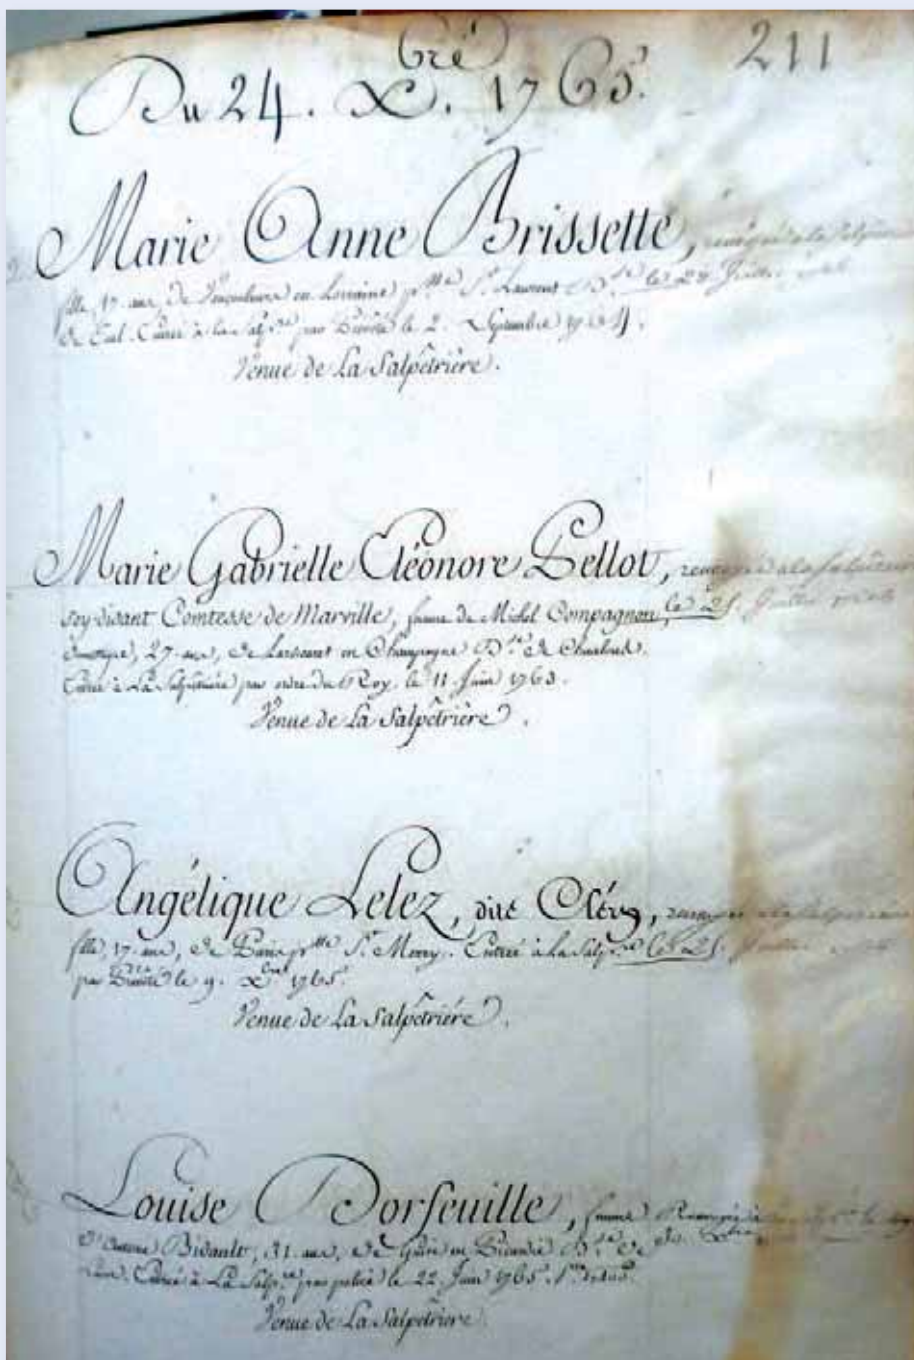 211
Du 24. Xbre. 1765.
Marie Anne Brissette, renvoyée a la Salpêtriere
fille, 17. ans, de Vaucouleurs en Lorraine p.sse St. Laurent D.se le 25 Juillet
de Tul. Entrée à la Salp.re par Prévôté le 2. Septembre 1764.
Venue de La Salpêtrière.
Marie Gabrielle Eléonore Pellot, renvoyée a la Salpêtriere
soy disant Comtesse de Marville, femme de Michel Compagnon, le 25. Juillet
27. ans, de en Champagne D.se de
Entrée à La Salpêtrière par ordre du Roy, le 11. Juin 1763.
Venue de La Salpêtrière.
Angélique Lelez, dite Cléry, renvoyée a la Salpetriere
fille, 17. ans, de Paris p.sse St. Merry. Entrée à la Salp.re le 25. Juillet
par Prévôté le 9. Xbre 1765.
Venue de La Salpêtrière.
Louise Dorfeuille, femme Renvoyée à
d'Antoine Bidault, 31. ans, de en Picardie D.se de
Entrée à La Salp.re par police le 22. Juin 1765.
Venue de La Salpêtrière.